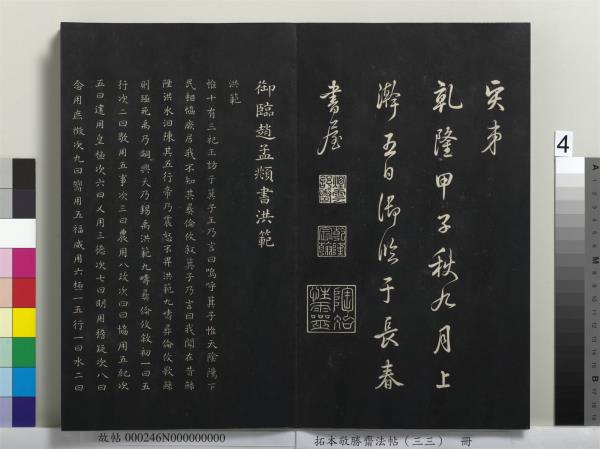 奕來
乾隆甲子秋九月上
澣五日御臨于長春
書屋
陶冶
性靈
御臨趙孟頫書洪範
洪範
惟十有三祀王訪于箕子王乃言曰嗚呼箕子惟天陰騭下
民相協厥居我不知其彝倫攸敘箕子乃言曰我聞在昔鯀
陻洪水汩陳其五行帝乃震怒不畀洪範九疇彝倫攸斁鯀
則殛死禹乃嗣興天乃錫禹洪範九疇彝倫攸敘初一曰五
行次二曰敬用五事次三曰農用八政次四曰協用五紀次
五曰建用皇極次六曰乂用三德次七曰明用稽疑次八曰
念用庶徵次九曰嚮用五福威用六極一五行一曰水二曰
4
故帖 000246N000000000
拓本敬勝齋法帖（三三） 冊